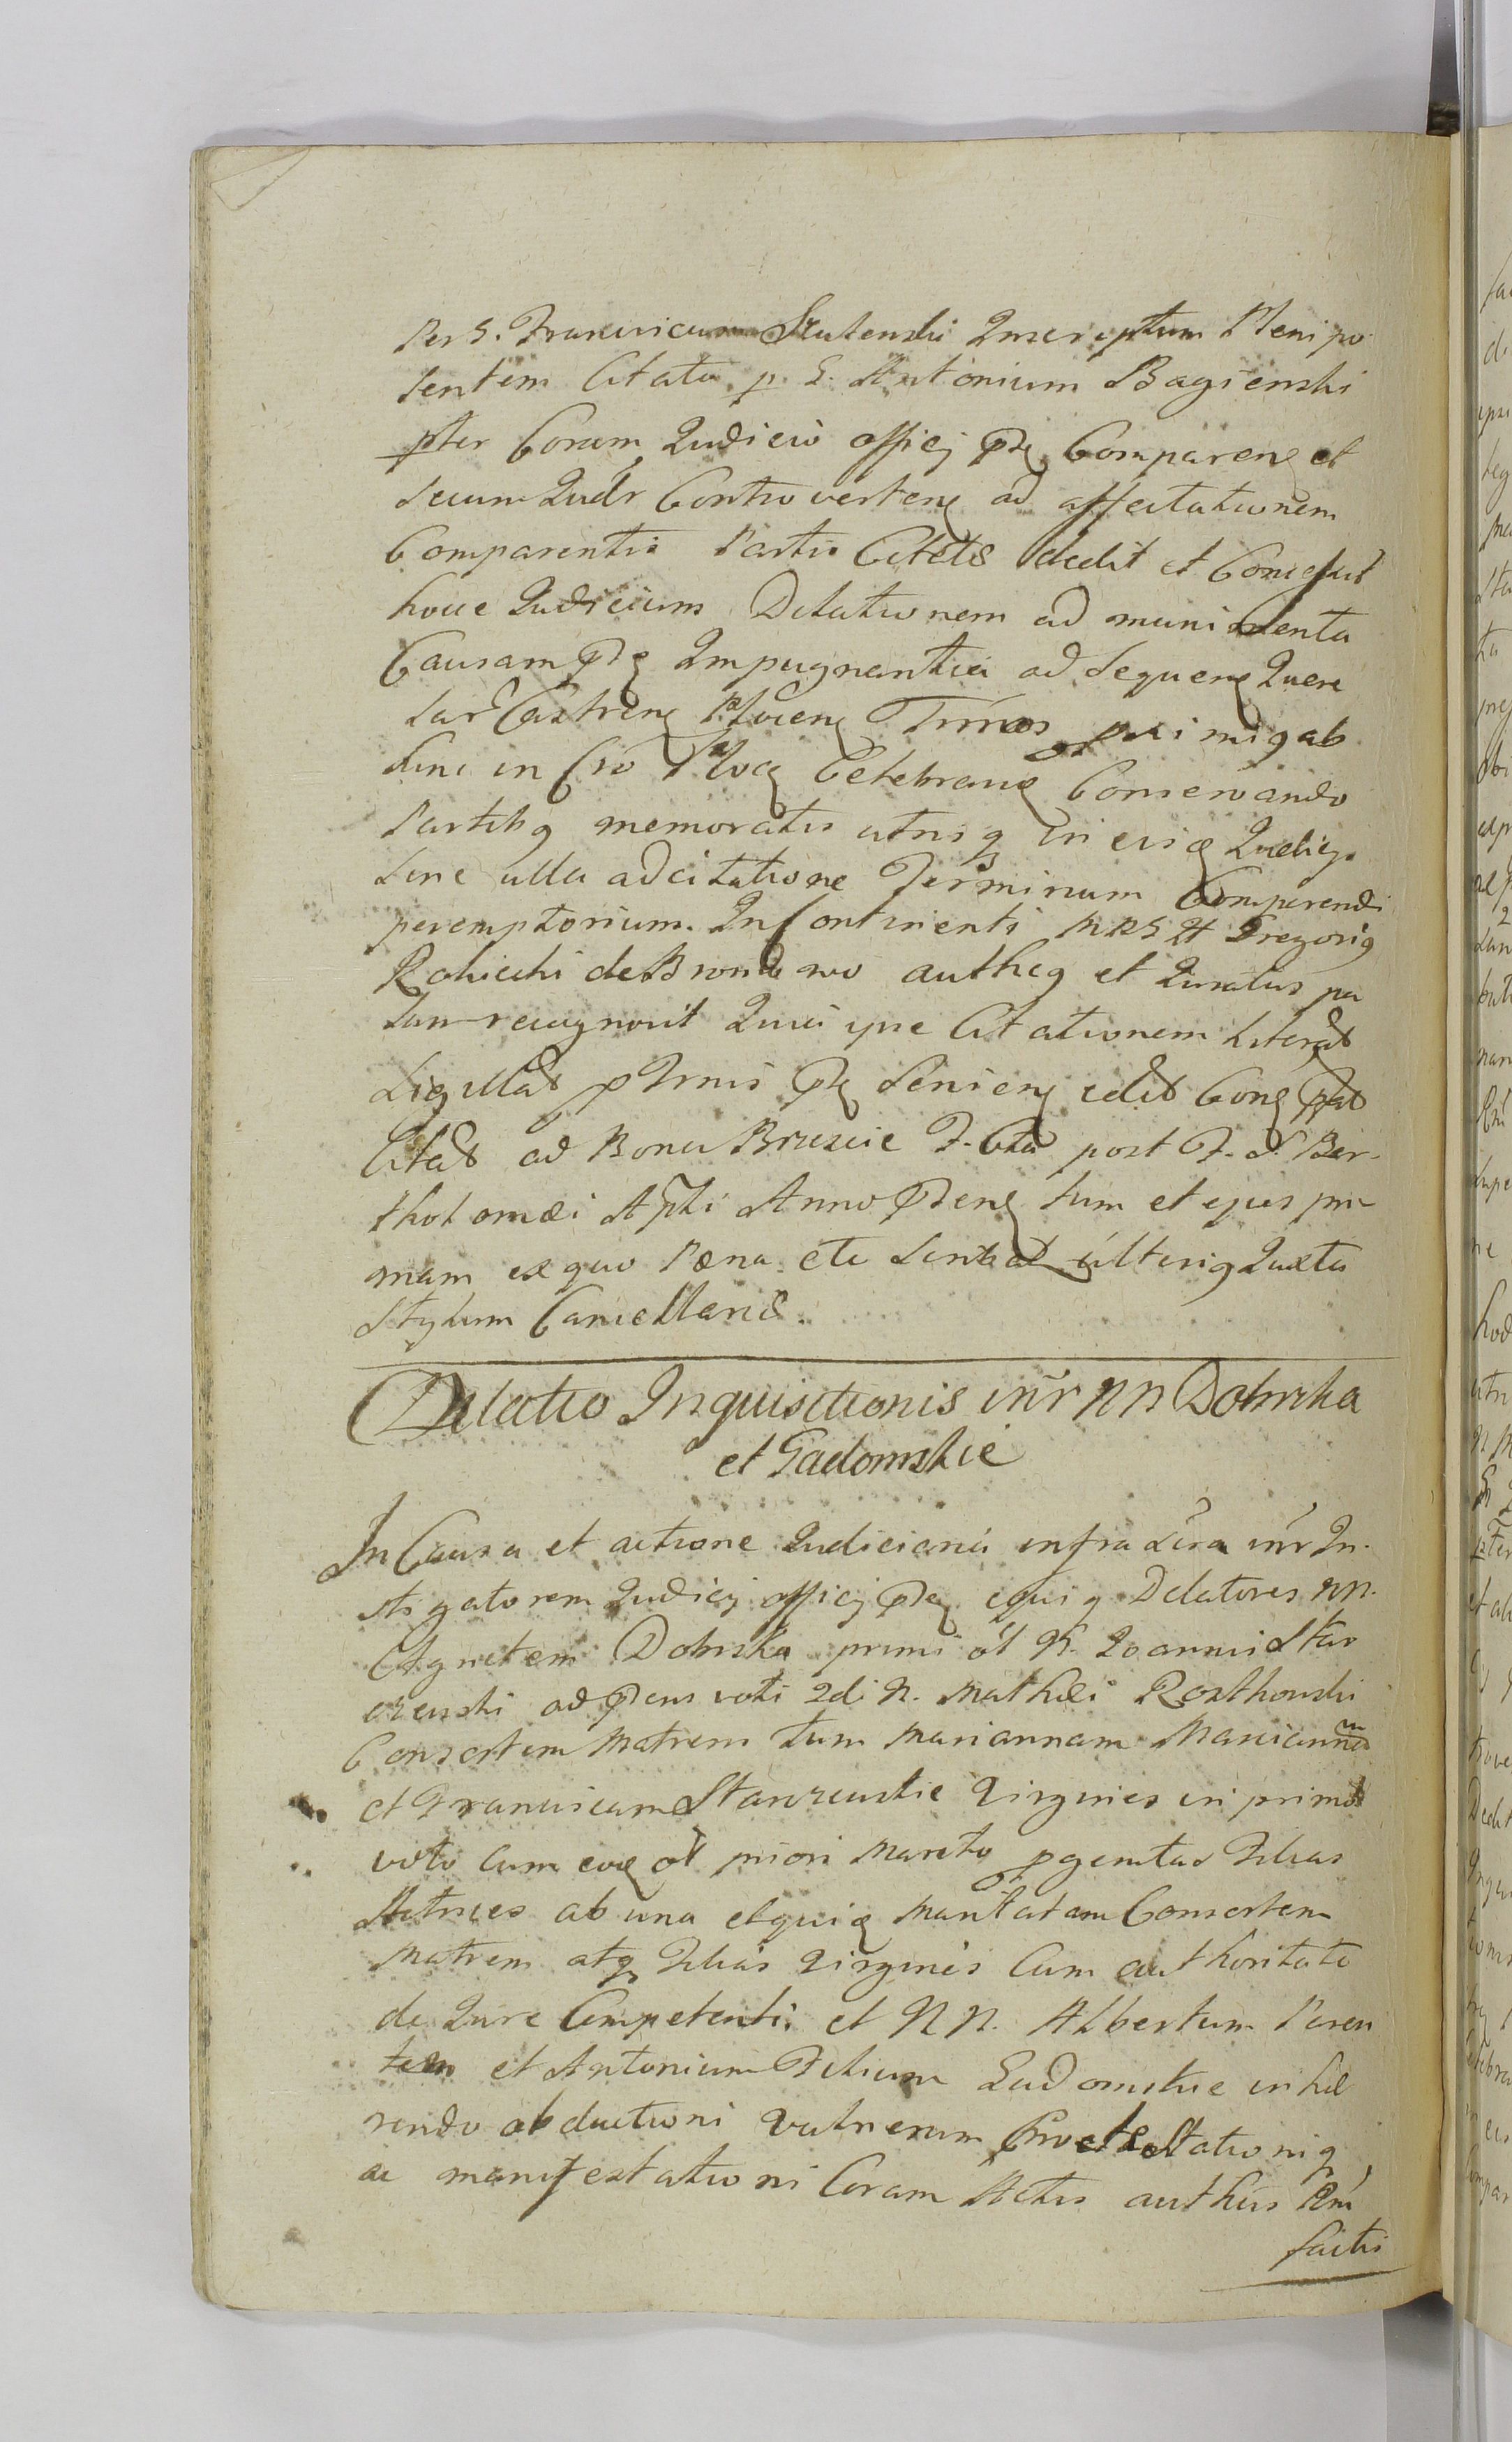 Per G. Franciscum Szutenski Inscriptum Plenipo
tentem Citata p. G. Antonium Bagienski
pter Coram Judicio officij pt Comparens et
secum Judr Controvertens ad affectationem
Comparentis Partis Citatæ dedit et Concessit
hocce Judicium Dilationem ad munimenta
Causam pt Impugnantia ad sequens Quere
lar Castrens Plocens Trmos primig ab
hinc in Cro Ploc Celebrans Conservando
Partibg memoratis utrisq in eisq Judicijs
sine ulla adcitatione Terminum Comparendi
peremptorium. In Continenti Gregorig
Rokicki de authcg et Juratus pa
lam recognovit Quia ipse Citationem Literat
Sigillat ptrmis pt edit
Citat ad Bona F. post F. S. Bar-
tholomæi Apli Anno pens tum et ejus pri-
mam ex quo Pæna etc ulterig Juxta
Stylum Cancellariæ.
Dilatio Inquisitionis intr NN Dobrska
et Gadomskie
In Causa et actione Judiciaria infra intr In-
stigatorem Judicij officij pt ejusq Delatores NN.
Agnetem Dobrska primi ol N. Joannis Sta
czewski ad pens voti 2di N. Mathæi Rostkowski
Consortem Matrem tum Mariannam
et Franciscam Starczewskie Virgines in primo
voto cum eoq ol priori Marito pgenitas Filias
Actrices ab una ejusq Maritatam Consortem
Matrem atq Filias Virgines Cum authoritate
de Jure Competenti et NN. Albertum Paren
tem et Antonium Filium Gadomskie inhæ
rendo obductioni Vulnerum Protestationiq
ac manifestationi Coram Actis authcis
factis